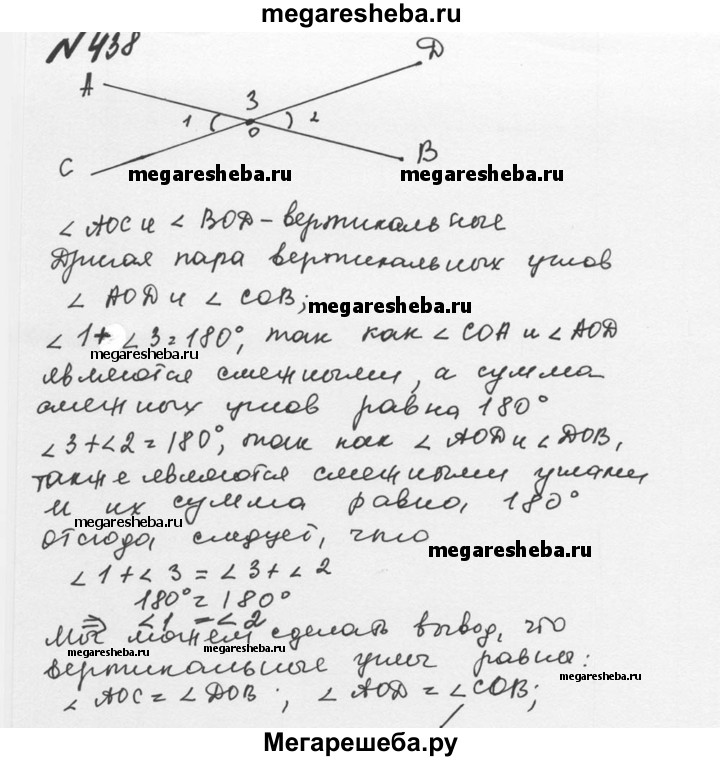 megaresheba.ru
N 438
A
D
3
1
2
O
C
B
megaresheba.ru
megaresheba.ru
∠ AOC и ∠ BOD - вертикальные
Другая пара вертикальных углов
∠ AOD и ∠ COB;
megaresheba.ru
∠ 1 + ∠ 3 = 180°, так как ∠ COA и ∠ AOD
megaresheba.ru
являются смежными, а сумма
смежных углов равна 180°
∠ 3 + ∠ 2 = 180°, так как ∠ AOD и ∠ DOB,
также являются смежными углами
и их сумма равна 180°
megaresheba.ru
отсюда, следует, что
megaresheba.ru
∠ 1 + ∠ 3 = ∠ 3 + ∠ 2
180° = 180°
⇒ ∠ 1 = ∠ 2
Мы можем сделать вывод, что
megaresheba.ru
megaresheba.ru
вертикальные углы равны:
megaresheba.ru
∠ AOC = ∠ DOB ; ∠ AOD = ∠ COB;
Мегарешеба.ру